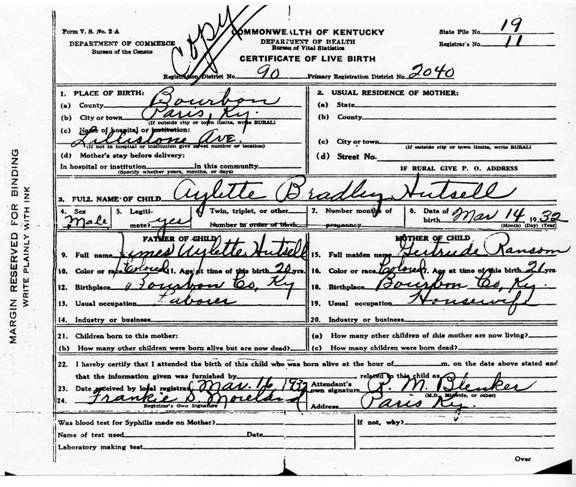 Form V. S. No. 2-A
DEPARTMENT OF COMMERCE
Bureau of the Census
Copy
COMMONWEALTH OF KENTUCKY
DEPARTMENT OF HEALTH
Bureau of Vital Statistics
CERTIFICATE OF LIVE BIRTH
State File No. 19
Registrar's No. 11
Registration District No. 90 Primary Registration District No. 2040
MARGIN RESERVED FOR BINDING
WRITE PLAINLY WITH INK
1. PLACE OF BIRTH:
(a) County Bourbon
(b) City or town Paris, Ky.
(If outside city or town limits, write RURAL)
(c) Name of hospital or institution:
Lilleston Ave.
(If not in hospital or institution give street number or location)
(d) Mother's stay before delivery:
In hospital or institution. In this community
(Specify whether years, months, or days)
2. USUAL RESIDENCE OF MOTHER:
(a) State
(b) County
(c) City or town
(If outside city or town limits, write RURAL)
(d) Street No.
IF RURAL GIVE P. O. ADDRESS
3. FULL NAME OF CHILD Aylette Bradley Hutsell
4. Sex Male
5. Legitimate? yes
Twin, triplet, or other
Number in order of birth
7. Number months of pregnancy
8. Date of birth Mar 14 1932
(Month) (Day) (Year)
FATHER OF CHILD
9. Full name James Aylette Hutsell
10. Color or race Colored 11. Age at time of this birth 20 yrs.
12. Birthplace Bourbon Co, Ky
13. Usual occupation Laborer
14. Industry or business
MOTHER OF CHILD
15. Full maiden name Gertrude Ransom
16. Color or race Colored Age at time of this birth 21 yrs.
18. Birthplace Bourbon Co, Ky.
19. Usual occupation Housewife
20. Industry or business
21. Children born to this mother:
(b) How many other children were born alive but are now dead?
(a) How many other children of this mother are now living?
(c) How many children were born dead?
22. I hereby certify that I attended the birth of this child who was born alive at the hour of m. on the date above stated and
that the information given was furnished by related to this child as
23. Date received by local registrar Mar. 16, 1932
24. Frankie D. Moreland
Registrar's Own Signature
Attendant's own signature R. M. Blenker
(M.D., Midwife, or other)
Address Paris Ky.
Was blood test for Syphilis made on Mother?
Name of test used Date
Laboratory making test
If not, why?
Over